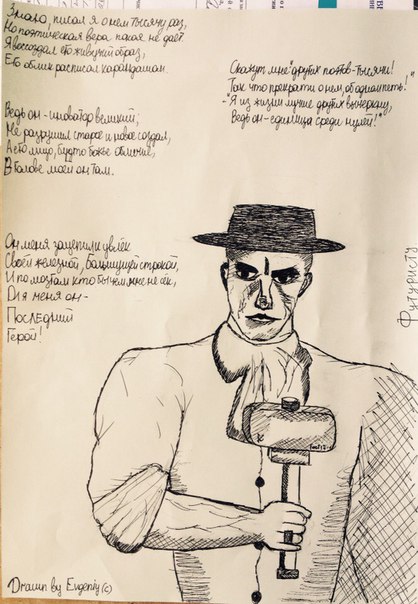 Знаю, писал я о нем тысячу раз,
Но поэтическая вера покоя не даёт
Я воссоздал его живучий образ,
Его облик расписал карандашом.
Ведь он - новатор великий,
Не разрушил старое и новое создал,
А его лицо, будто божье обличие,
В голове моей он там.
Он меня зацепил и увлёк
Своей железной, большущей строкой,
И по мозгам кто бы чем мне не сёк,
Для меня он -
Последний
Герой!
Скажут мне "других поэтов - тысячи!
Так что прекрати о нем об одном петь!"
- "Я из жизни лучше других вычеркну,
Ведь он - единица среди нулей!"
Футуристу
Drawn by Evgeniy (c)